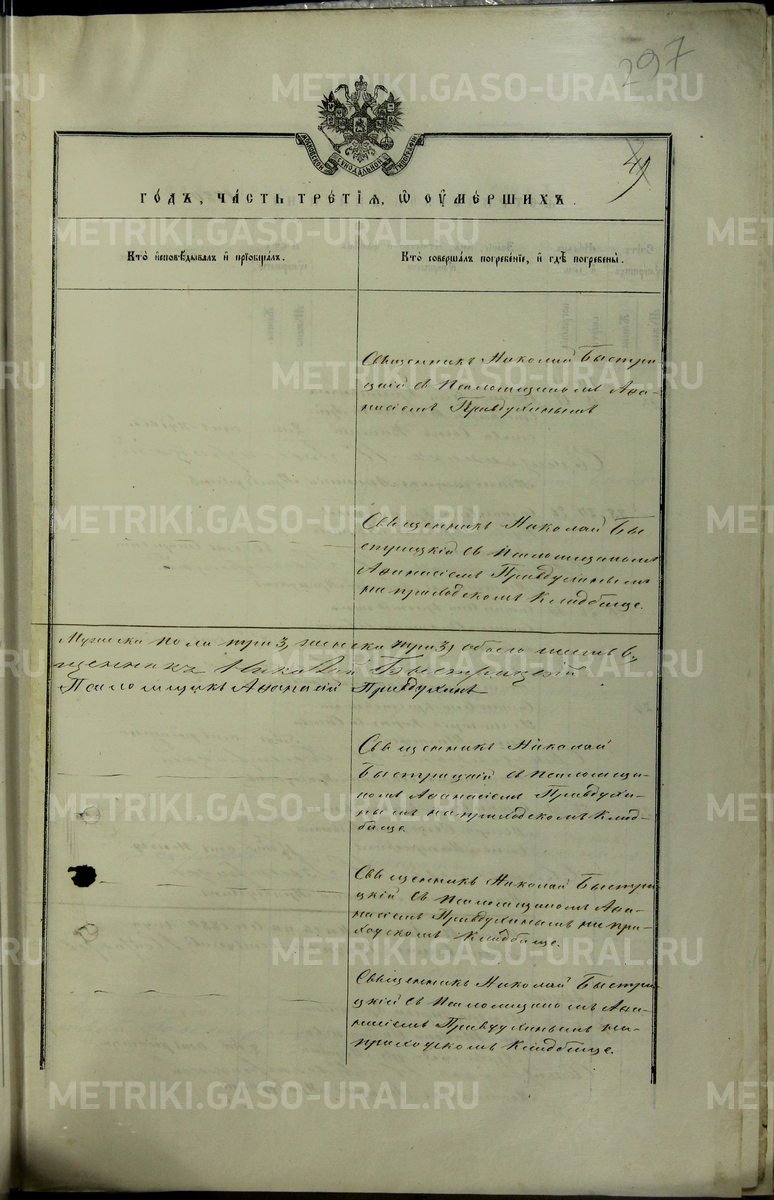 297
МОСКОВСКОЙ СѴНОДАЛЬНОЙ ТИПОГРАФІИ
ГО́ДЪ, ЧА́СТЬ ТРЕ́ТІЯ, Ѽ ОУМЕ́РШИХЪ.
Кто̀ и҆сповѣ́дывалъ и҆ прїѡбща́лъ.
Кто̀ соверша́лъ погребе́нїе, и҆ гдѣ̀ погребены̀.
Священникъ Николай Быстри
цкій съ Псаломщикомъ Афа-
насіемъ Правдухинымъ
Священникъ Николай Бы
стрицкій съ Псаломщикомъ
Афанасіемъ Правдухинымъ
на приходскомъ Кладбище.
Мужска пола три 3, женска три 3, обоего шесть 6,
щенникъ Николай Быстрицкій
Псаломщикъ Афанасій Правдухинъ
Священникъ Николай
Быстрицкій съ псаломщи-
комъ Афанасіемъ Правдухи-
нымъ на приходскомъ Клад-
бище.
Священникъ Николай Быстри
цкій съ Псаломщикомъ Афа-
насіемъ Правдухинымъ на при-
ходскомъ Кладбище.
Священникъ Николай Быстри
цкій съ Псаломщикомъ Афа-
насіемъ Правдухинымъ на-
приходскомъ Кладбище.
METRIKI.GASO-URAL.RU